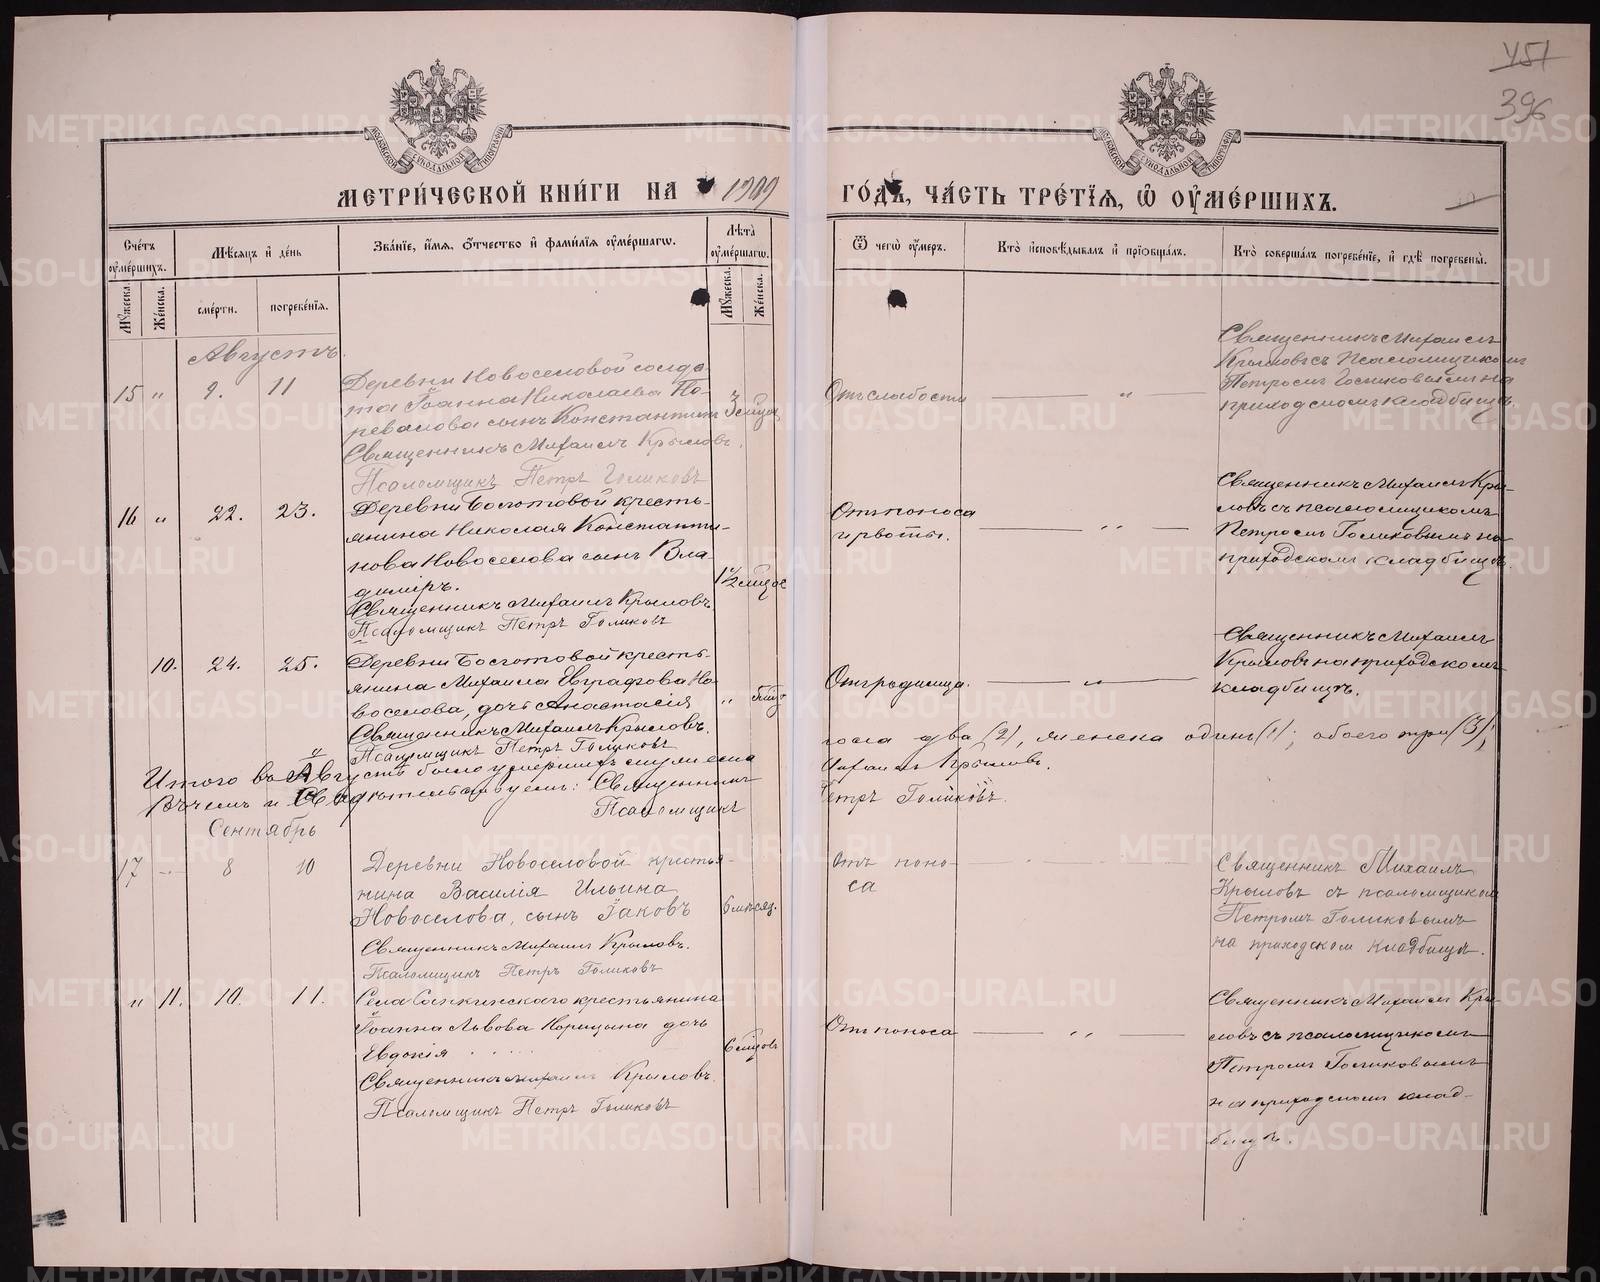 451
396
МЕТРИ́ЧЕСКОЙ КНИ́ГИ НА 1909 ГО́ДЪ, ЧА́СТЬ ТРЕ́ТІѦ, Ѡ҆ ОУ҆МЕ́РШИХЪ.
Сче́тъ оу҆ме́ршихъ.
Мѣ́сяцъ и҆ де́нь
Зва́ніе, и҆́мя, ѻ҆́тчество и҆ фами́лія оу҆ме́ршагѡ.
Лѣ́та оу҆ме́ршагѡ.
Ѿ чегѡ̀ оу҆́меръ.
Кто̀ и҆сповѣ́дывалъ и҆ прїѻбща́лъ.
Кто̀ соверша́лъ погребе́ніе, и҆ гдѣ̀ погребены̀.
Мꙋ́жеска.
Же́нска.
сме́рти.
погребе́нія.
Мꙋ́жеска.
Же́нска.
Августъ.
15 " 9. 11
Деревни Новоселовой солда-
та Іоанна Николаева
сынъ Константинъ
Священникъ Михаилъ Крыловъ.
Псаломщикъ Петръ Голиковъ
3
Отъ слабости
"
Священникъ Михаилъ
Крыловъ съ псаломщикомъ
Петромъ Голиковымъ на
приходскомъ кладбищѣ.
16 " 22. 23.
Деревни кресть-
янина Николая Константи-
нова Новоселова сынъ Вла-
димiръ.
Священникъ Михаилъ Крыловъ.
Псаломщикъ Петръ Голиковъ
1½
Отъ поноса
и рвоты.
"
Священникъ Михаилъ Кры-
ловъ съ псаломщикомъ
Петромъ Голиковымъ на
приходскомъ кладбищѣ
10. 24. 25.
Деревни кресть-
янина Михаила Евграфова Но-
воселова, дочь Анастасія
Священникъ Михаилъ Крыловъ.
Псаломщикъ Петръ Голиковъ
"
Отъ родимца.
"
Священникъ Михаилъ
Крыловъ на приходскомъ
кладбищѣ.
Итого въ Августѣ было умершихъ мужеска пола два (2), женска одинъ (1); обоего три (3);
въ чемъ и Свидѣтельствуемъ: Священникъ Михаилъ Крыловъ.
Псаломщикъ Петръ Голиковъ.
Сентябрь
17 8 10
Деревни Новоселовой кресть-
янина Василія Ильина
Новоселова, сынъ Іаковъ
Священникъ Михаилъ Крыловъ.
Псаломщикъ Петръ Голиковъ
6 мѣсяц.
Отъ поно-
са
Священникъ Михаилъ
Крыловъ съ псаломщиком
Петромъ Голиковымъ
на приходском кладбищѣ.
" 11. 10. 11.
Села крестьянина
Іоанна Львова дочь
Евдокія
Священникъ Михаилъ Крыловъ.
Псаломщикъ Петръ Голиковъ
6
Отъ поноса
"
Священникъ Михаилъ Кры-
ловъ съ псаломщикомъ
Петромъ Голиковымъ
на приходскомъ клад-
бищѣ.
METRIKI.GASO-URAL.RU